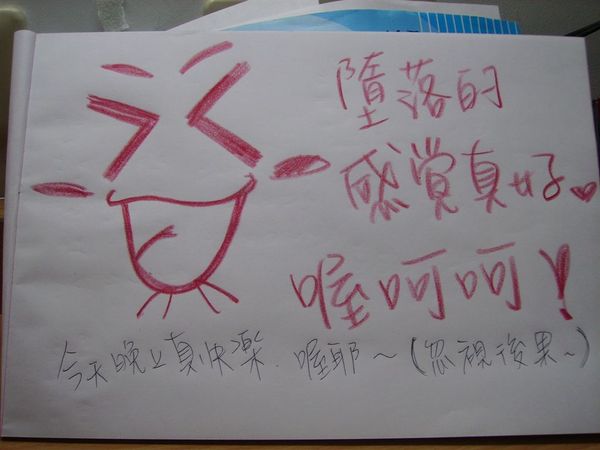 墮落的
感覚真好
喔呵呵!
今天晚上真快樂.喔耶~(忽視後果~)